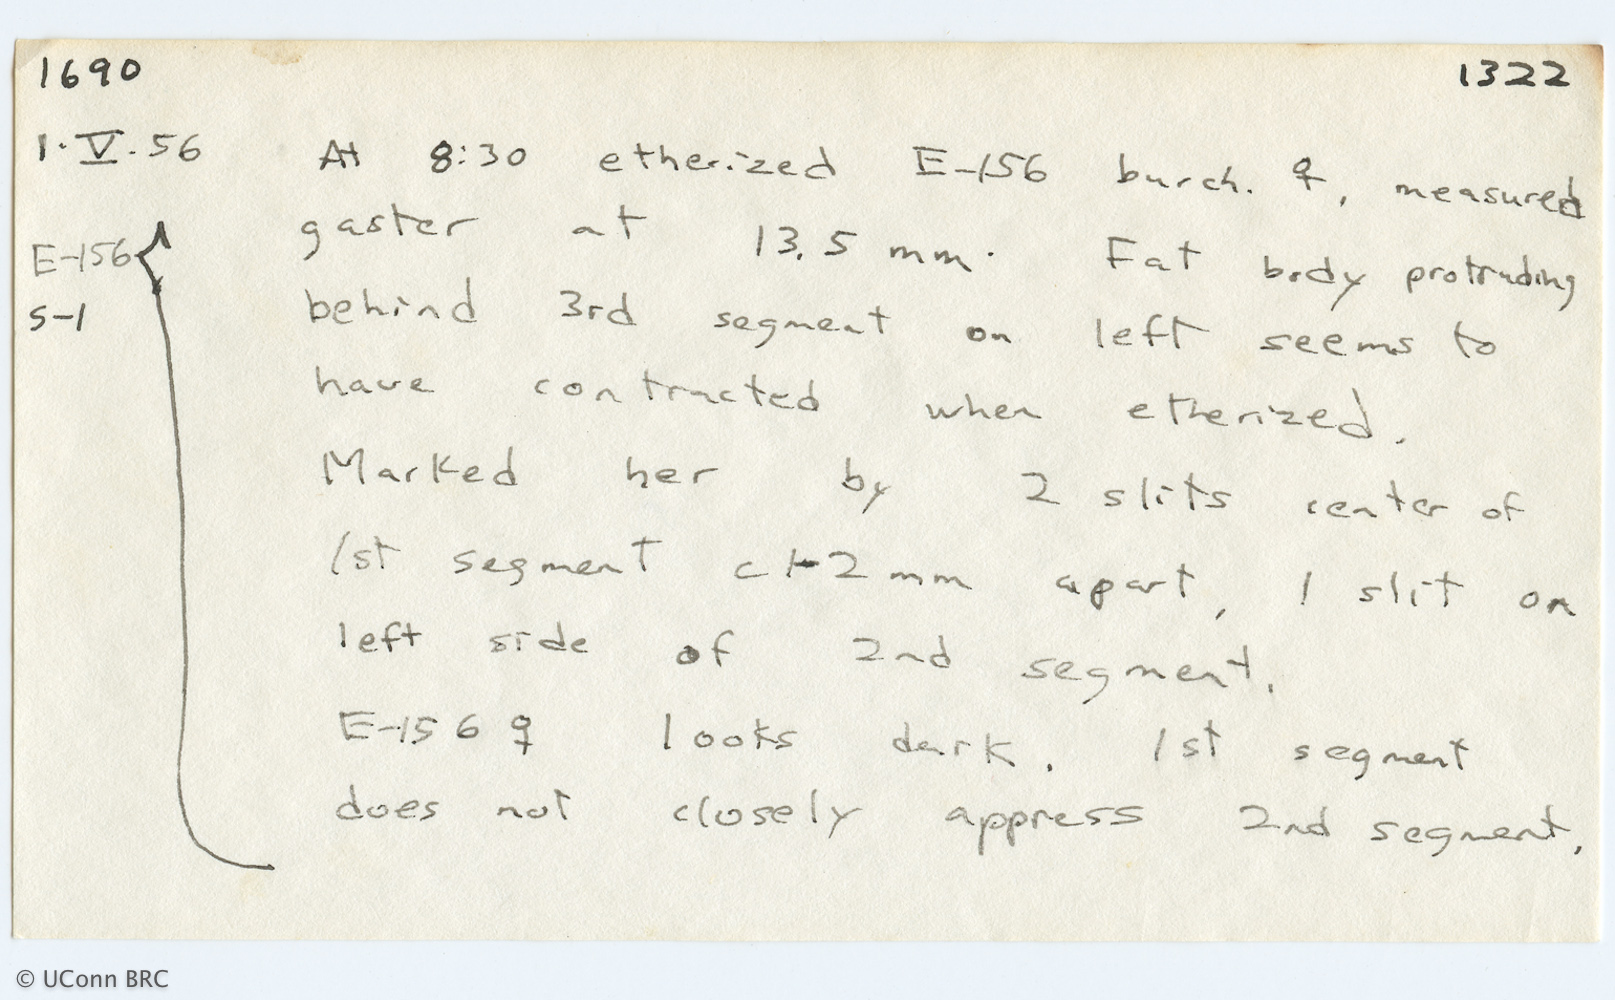 1690
1322
1·V·56
At 8:30 etherized E-156 burch. ♀, measured
gaster at 13.5 mm. Fat body protruding
E-156
behind 3rd segment on left seems to
S-1
have contracted when etherized.
Marked her by 2 slits center of
1st segment c 1-2 mm apart, 1 slit on
left side of 2nd segment.
E-156 ♀ looks dark. 1st segment
does not closely appress 2nd segment.
© UConn BRC